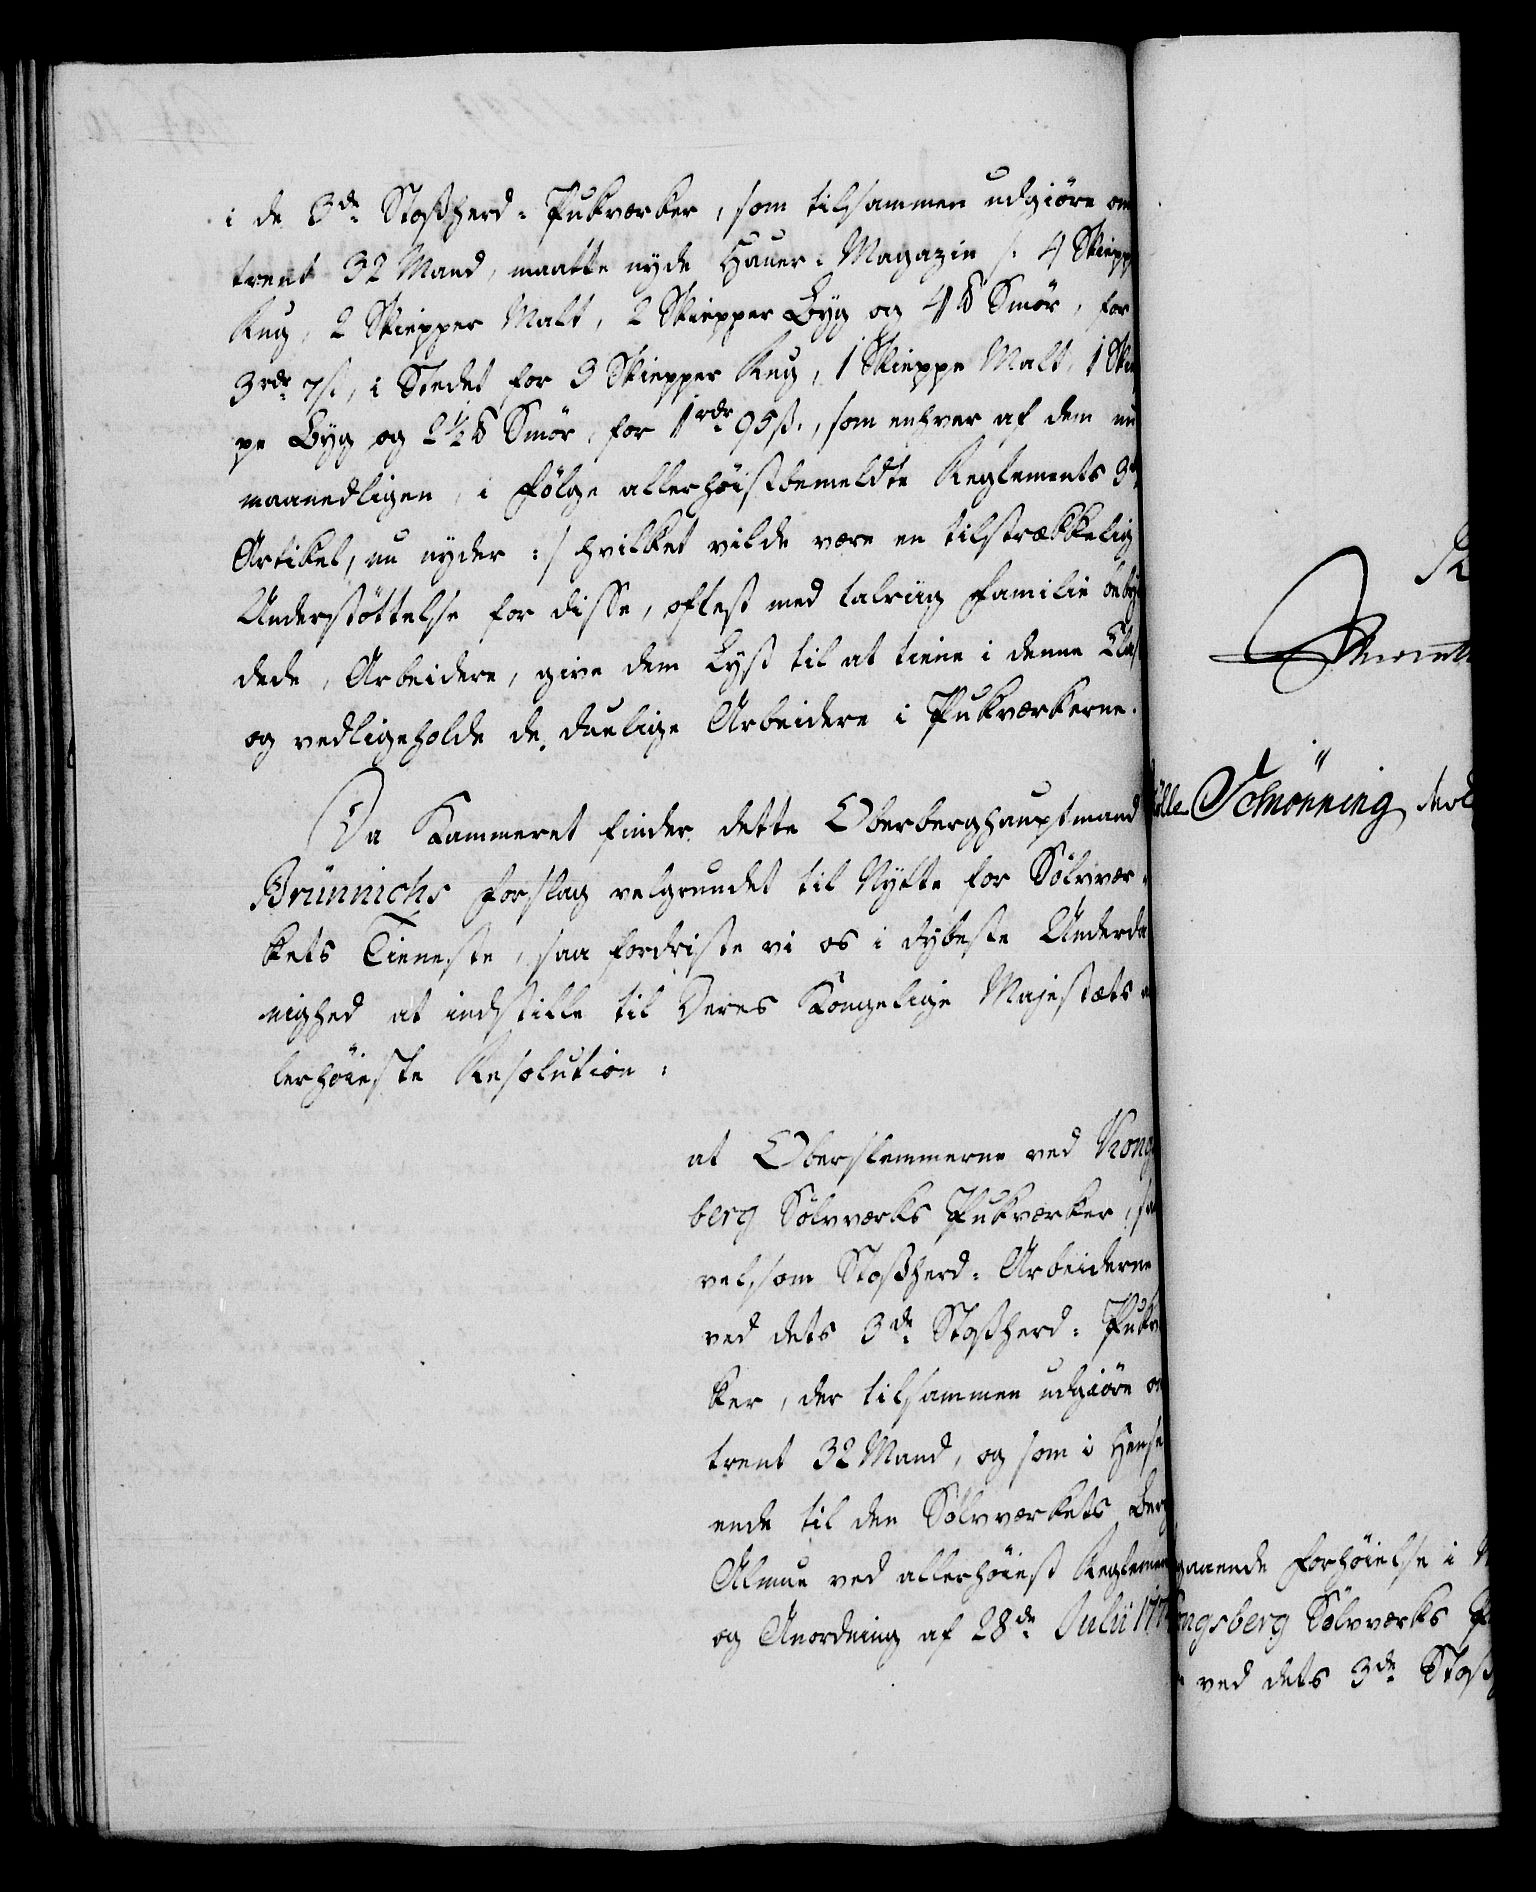 i de 3de Stoßherd-Pukværker, som tilsammen udgiöre om
trent 32 Mand, maatte nyde Hauer-Magazin /: 4 Skiepp
Rug, 2 Skiepper Malt, 2 Skiepper Byg og 4 ℔ Smör, for
3 rdr 7 ß, i Stedet for 3 Skiepper Rug, 1 Skieppe Malt, 1 Skie
pe Byg og 2½ ℔ Smör, for 1 rdr 95 ß., som enhver af dem nu
maanedligen, i Fölge allerhöistbemeldte Reglements 3de
Artikel, nu nyder :/ hvilket vilde være en tilstrækkelig
Understöttelse for disse, oftest med talriig Familie beby
dede, Arbeidere, give dem Lyst til at tiene i denne Clas
og vedligeholde de duelige Arbeidere i Pukværkerne.
Da Kammeret finder dette Oberberghauptmand
Brünnichs Forslag velgrundet til Nytte for Sölvvær-
kets Tieneste, saa fordriste vi os i dybeste Underda
nighed at indstille til Deres Kongelige Majestæts a
lerhöieste Resolution:
at Obersteммerne ved Kong
berg Sölvværks Pukværker, saa
velsom Stoßherd-Arbeiderne
ved dets 3de Stoßherd-Pukv
ker, der tilsammen udgiöre om
trent 32 Mand, og som i Hense
ende til den Sölvværkets Berg
Almue ved allerhöiest Reglement
og Anordning af 28de Julii 17
Schönning
gaaende Forhöielse i
ngsberg Sölvværks P
ved dets 3de Stoß